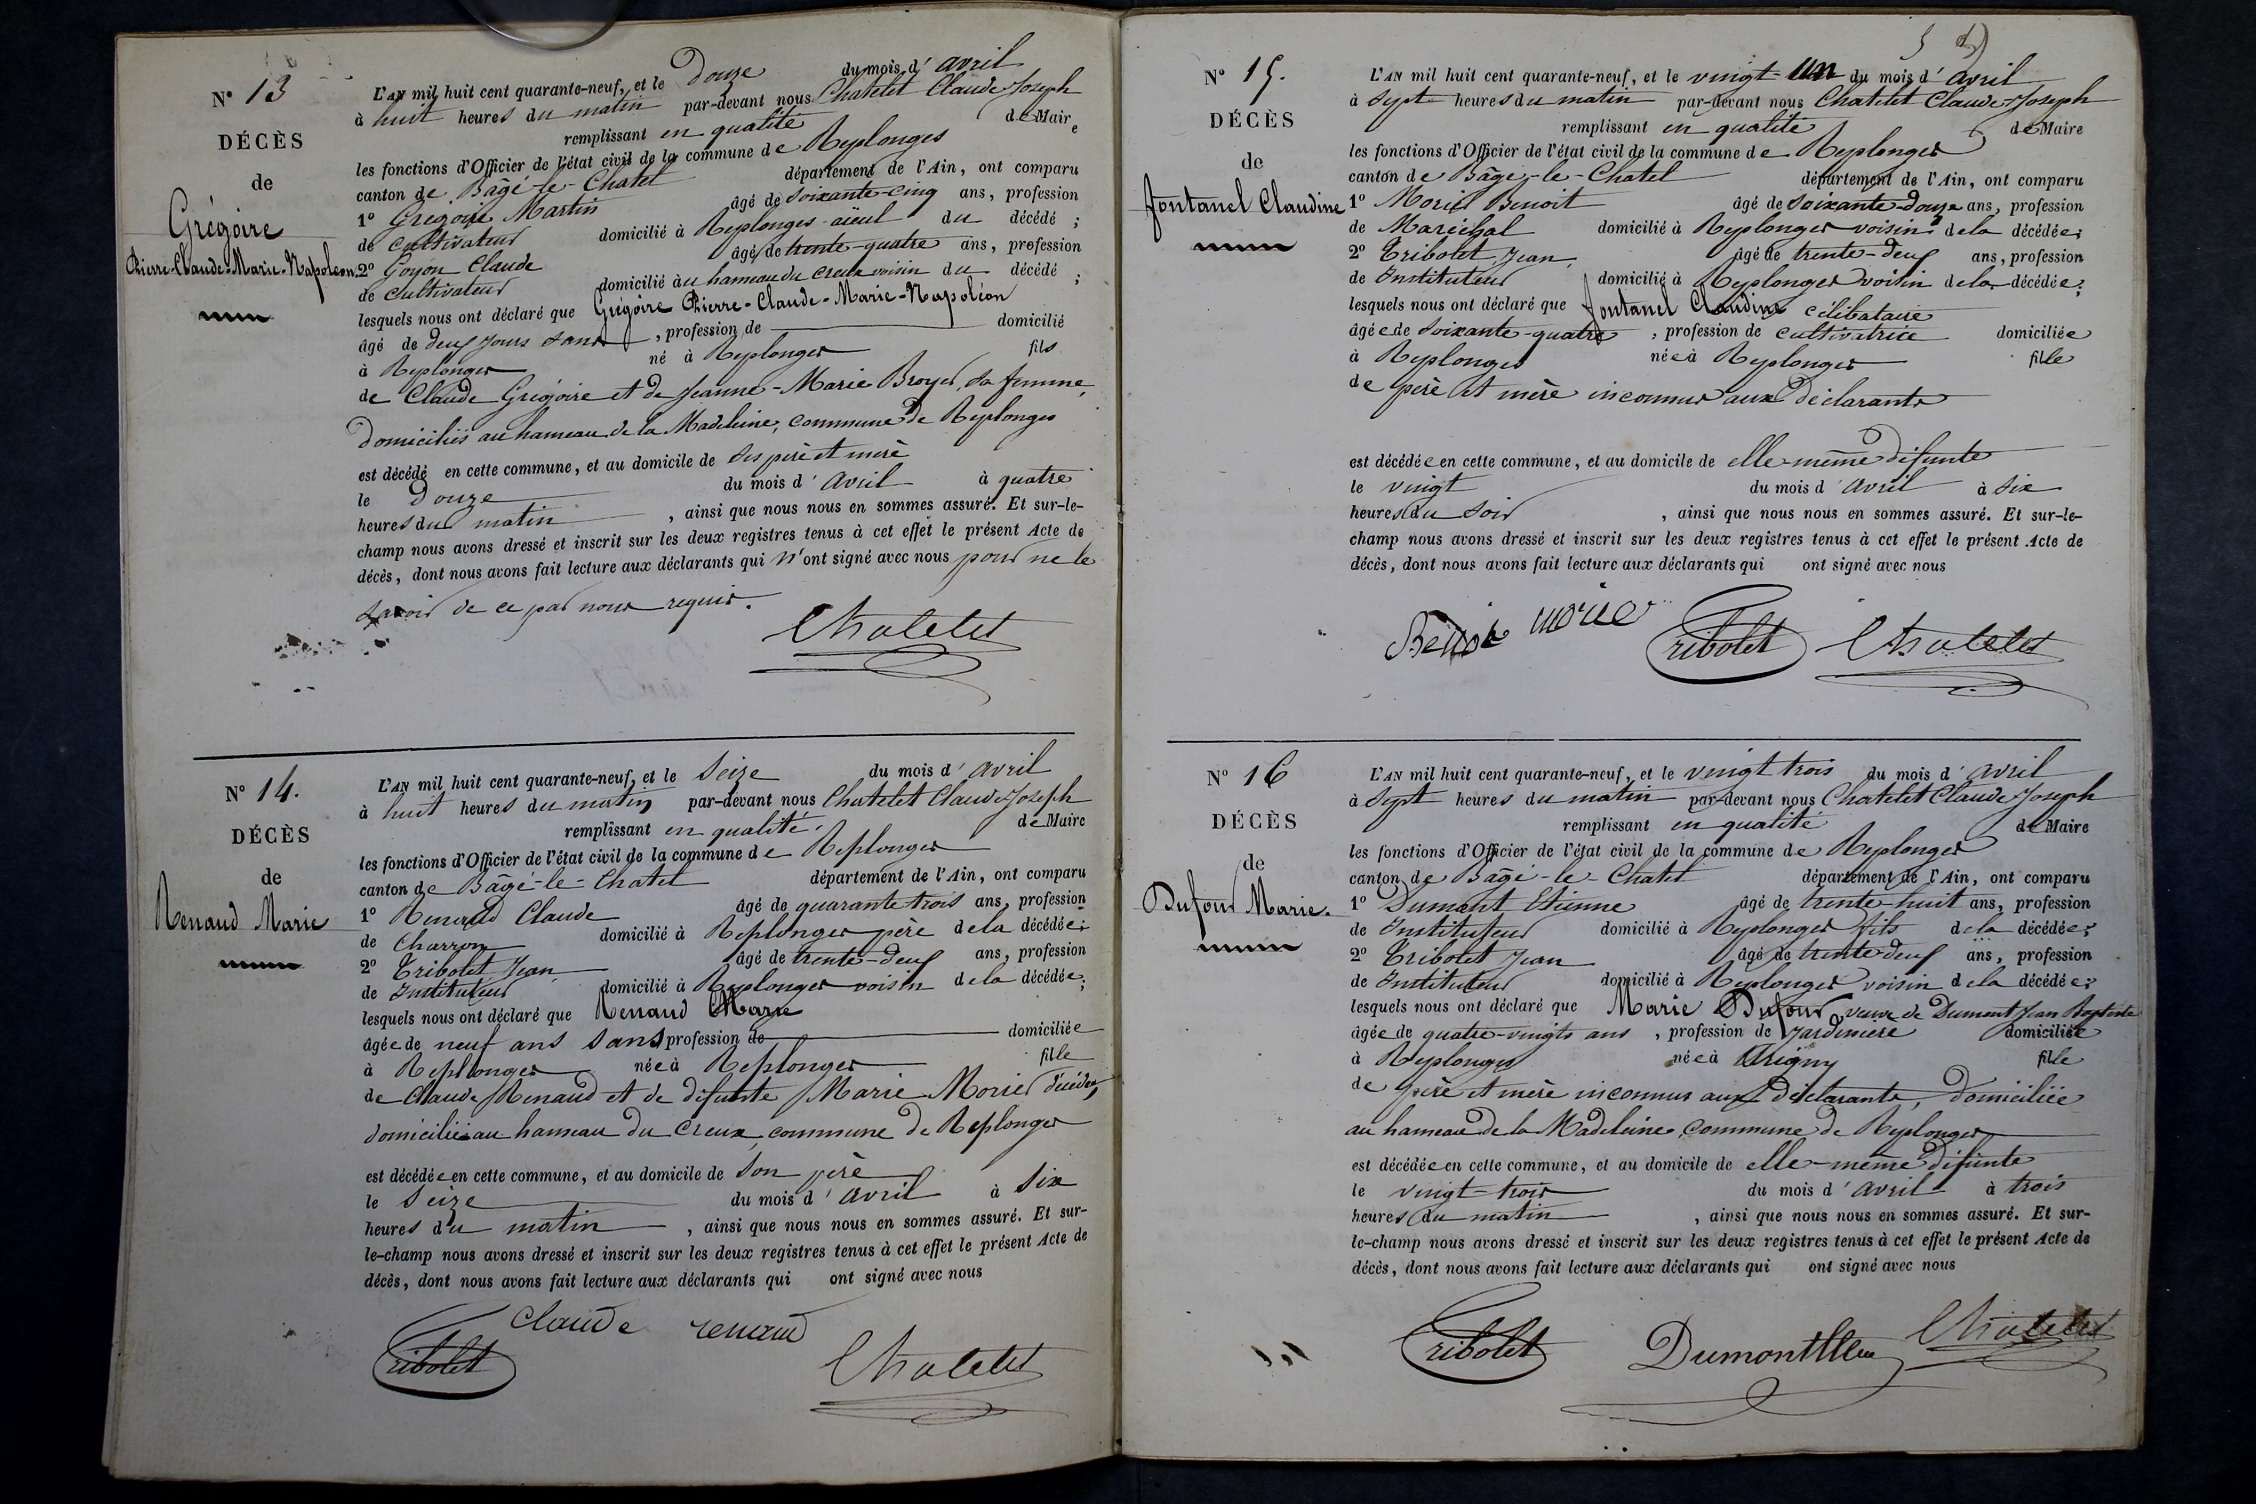 N° 13
DÉCÈS
de
Grégoire
Pierre-Claude-Marie-Napoléon
L'AN mil huit cent quarante-neuf, et le Douze du mois d' avril
à huit heures du matin par-devant nous Chatelet Claude-Joseph
remplissant en qualité de Maire
les fonctions d'Officier de l'état civil de la commune de Replonges
canton de Bâgé-le-Chatel département de l'Ain, ont comparu
1° Grégoire Martin âgé de soixante-cinq ans, profession
de cultivateur domicilié à Replonges aïeul du décédé ;
2° Goyon Claude âgé de trente-quatre ans, profession
de cultivateur domicilié au hameau du creux voisin du décédé ;
lesquels nous ont déclaré que Grégoire Pierre-Claude-Marie-Napoléon
âgé de deux jours sans , profession de domicilié
à Replonges né à Replonges fils
de Claude Grégoire et de Jeanne-Marie Broyer, sa femme,
domiciliés au hameau de la Madeleine, commune de Replonges
est décédé en cette commune, et au domicile de ses père et mère
le douze du mois d' avril à quatre
heures du matin , ainsi que nous nous en sommes assuré. Et sur-le-
champ nous avons dressé et inscrit sur les deux registres tenus à cet effet le présent Acte de
décès, dont nous avons fait lecture aux déclarants qui n'ont signé avec nous pour ne le
savoir de ce par nous requis.
Chatelet
N° 14.
DÉCÈS
de
Renaud Marie
L'AN mil huit cent quarante-neuf, et le Seize du mois d' avril
à huit heures du matin par-devant nous Chatelet Claude-Joseph
remplissant en qualité de Maire
les fonctions d'Officier de l'état civil de la commune de Replonges
canton de Bâgé-le-Chatel département de l'Ain, ont comparu
1° Renaud Claude âgé de quarante trois ans, profession
de Charron domicilié à Replonges père de la décédée ;
2° Tribolet Jean âgé de trente-deux ans, profession
de Instituteur domicilié à Replonges voisin de la décédée ;
lesquels nous ont déclaré que Renaud Marie
âgée de neuf ans sans profession de domiciliée
à Replonges née à Replonges fille
de Claude Renaud et de défunte Marie Morier décédée,
domiciliée au hameau du Creux commune de Replonges
est décédée en cette commune, et au domicile de son père
le Seize du mois d' avril à six
heures du matin , ainsi que nous nous en sommes assuré. Et sur-
le-champ nous avons dressé et inscrit sur les deux registres tenus à cet effet le présent Acte de
décès, dont nous avons fait lecture aux déclarants qui ont signé avec nous
claude renaud
Tribolet Chatelet
5
N° 15.
DÉCÈS
de
fontanel Claudine
L'AN mil huit cent quarante-neuf, et le vingt-un du mois d' avril
à sept heures du matin par-devant nous Chatelet Claude-Joseph
remplissant en qualité de Maire
les fonctions d'Officier de l'état civil de la commune de Replonges
canton de Bâgé-le-Chatel département de l'Ain, ont comparu
1° Morier Benoit âgé de soixante-douze ans, profession
de Maréchal domicilié à Replonges voisin de la décédée ;
2° Tribolet Jean, âgé de trente-deux ans, profession
de Instituteur domicilié à Replonges voisin de la décédée ;
lesquels nous ont déclaré que fontanel Claudine célibataire
âgée de soixante-quatre , profession de cultivatrice domiciliée
à Replonges née à Replonges fille
de père et mère inconnus aux déclarants
est décédée en cette commune, et au domicile de elle-même défunte
le vingt du mois d' avril à six
heures du soir , ainsi que nous nous en sommes assuré. Et sur-le-
champ nous avons dressé et inscrit sur les deux registres tenus à cet effet le présent Acte de
décès, dont nous avons fait lecture aux déclarants qui ont signé avec nous
Benoit morier Tribolet Chatelet
N° 16
DÉCÈS
de
Dufour Marie.
L'AN mil huit cent quarante-neuf, et le vingt trois du mois d' avril
à sept heures du matin par-devant nous Chatelet Claude-Joseph
remplissant en qualité de Maire
les fonctions d'Officier de l'état civil de la commune de Replonges
canton de Bâgé-le-Chatel département de l'Ain, ont comparu
1° Dumont Etienne âgé de trente-huit ans, profession
de Instituteur domicilié à Replonges fils de la décédée ;
2° Tribolet Jean âgé de trente deux ans, profession
de Instituteur domicilié à Replonges voisin de la décédée ;
lesquels nous ont déclaré que Marie Dufour veuve de Dumont Jean Baptiste
âgée de quatre-vingts ans , profession de jardinière domiciliée
à Replonges née à Trigny fille
de père et mère inconnus aux déclarants, domiciliée
au hameau de la Madeleine, commune de Replonges
est décédée en cette commune, et au domicile de elle-même défunte
le vingt-trois du mois d' avril à trois
heures du matin , ainsi que nous nous en sommes assuré. Et sur-
le-champ nous avons dressé et inscrit sur les deux registres tenus à cet effet le présent Acte de
décès, dont nous avons fait lecture aux déclarants qui ont signé avec nous
Tribolet Dumont Chatelet